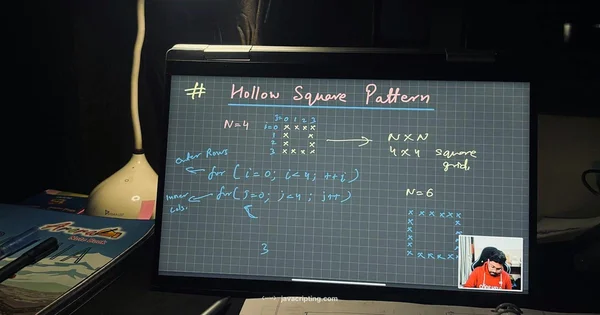 # Hollow Square Pattern
N=4
J=0 1 2 3
i=0 x x x x
1 x x
2 x x
3 x x x x
N X N
4 X 4 square
grid
outer Rows
for ( i=0; i<4; ++i )
Inner
cols.
for( J=0; j<4; j++ )
3
N=6
x x x x x x
x
x
x
x
x x x x x
javascripting.com